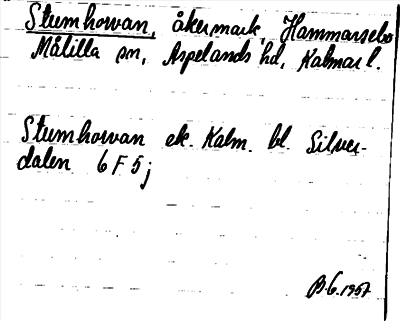 Stumhorvan, åkermark, Hammarsebo
Målilla sn, Aspelands hd, Kalmar l.
Stumhorvan ek. Kalm. bl. Silver-
dalen 6 F 5 j
B.G. 1957